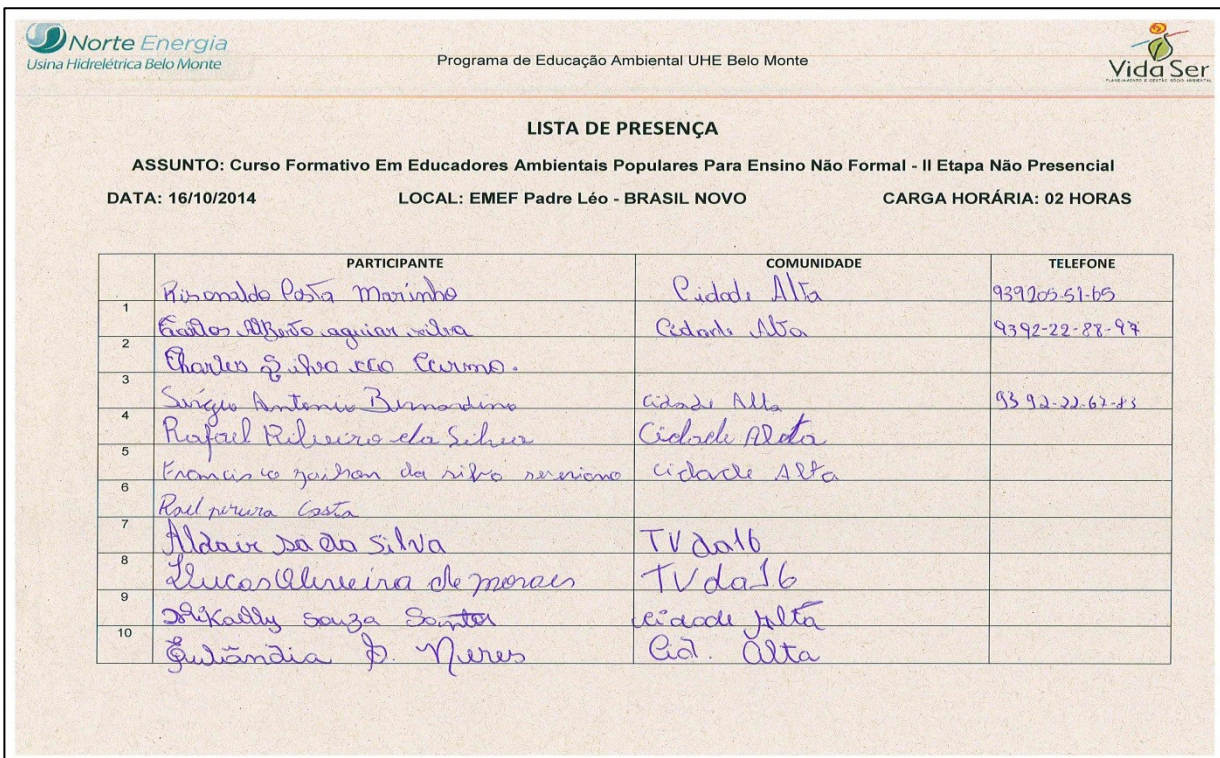 Norte Energia
Usina Hidrelétrica Belo Monte
Programa de Educação Ambiental UHE Belo Monte
Vida Ser
PLANEJAMENTO E GESTÃO SÓCIO AMBIENTAL
LISTA DE PRESENÇA
ASSUNTO: Curso Formativo Em Educadores Ambientais Populares Para Ensino Não Formal - II Etapa Não Presencial
DATA: 16/10/2014 LOCAL: EMEF Padre Léo - BRASIL NOVO CARGA HORÁRIA: 02 HORAS
PARTICIPANTE COMUNIDADE TELEFONE
Risonaldo Costa Marinho Cidade Alta 939205-51-65
1
Carlos Alberto aguiar silva Cidade Alta 9392-22-88-97
2
Charles Silva do Carmo.
3
Sergio Antonio Bernardino cidade Alta 9392-22-67-83
4
Rafael Ribeiro da Silva Cidade Alta
5
Francisco da silva cidade Alta
6
pereira Costa
7
Aldair sá da Silva TV da16
8
Lucas Oliveira de moraes TV da 16
9
Mikaelly Souza Santos cidade Alta
10
D. Neres Cid. alta